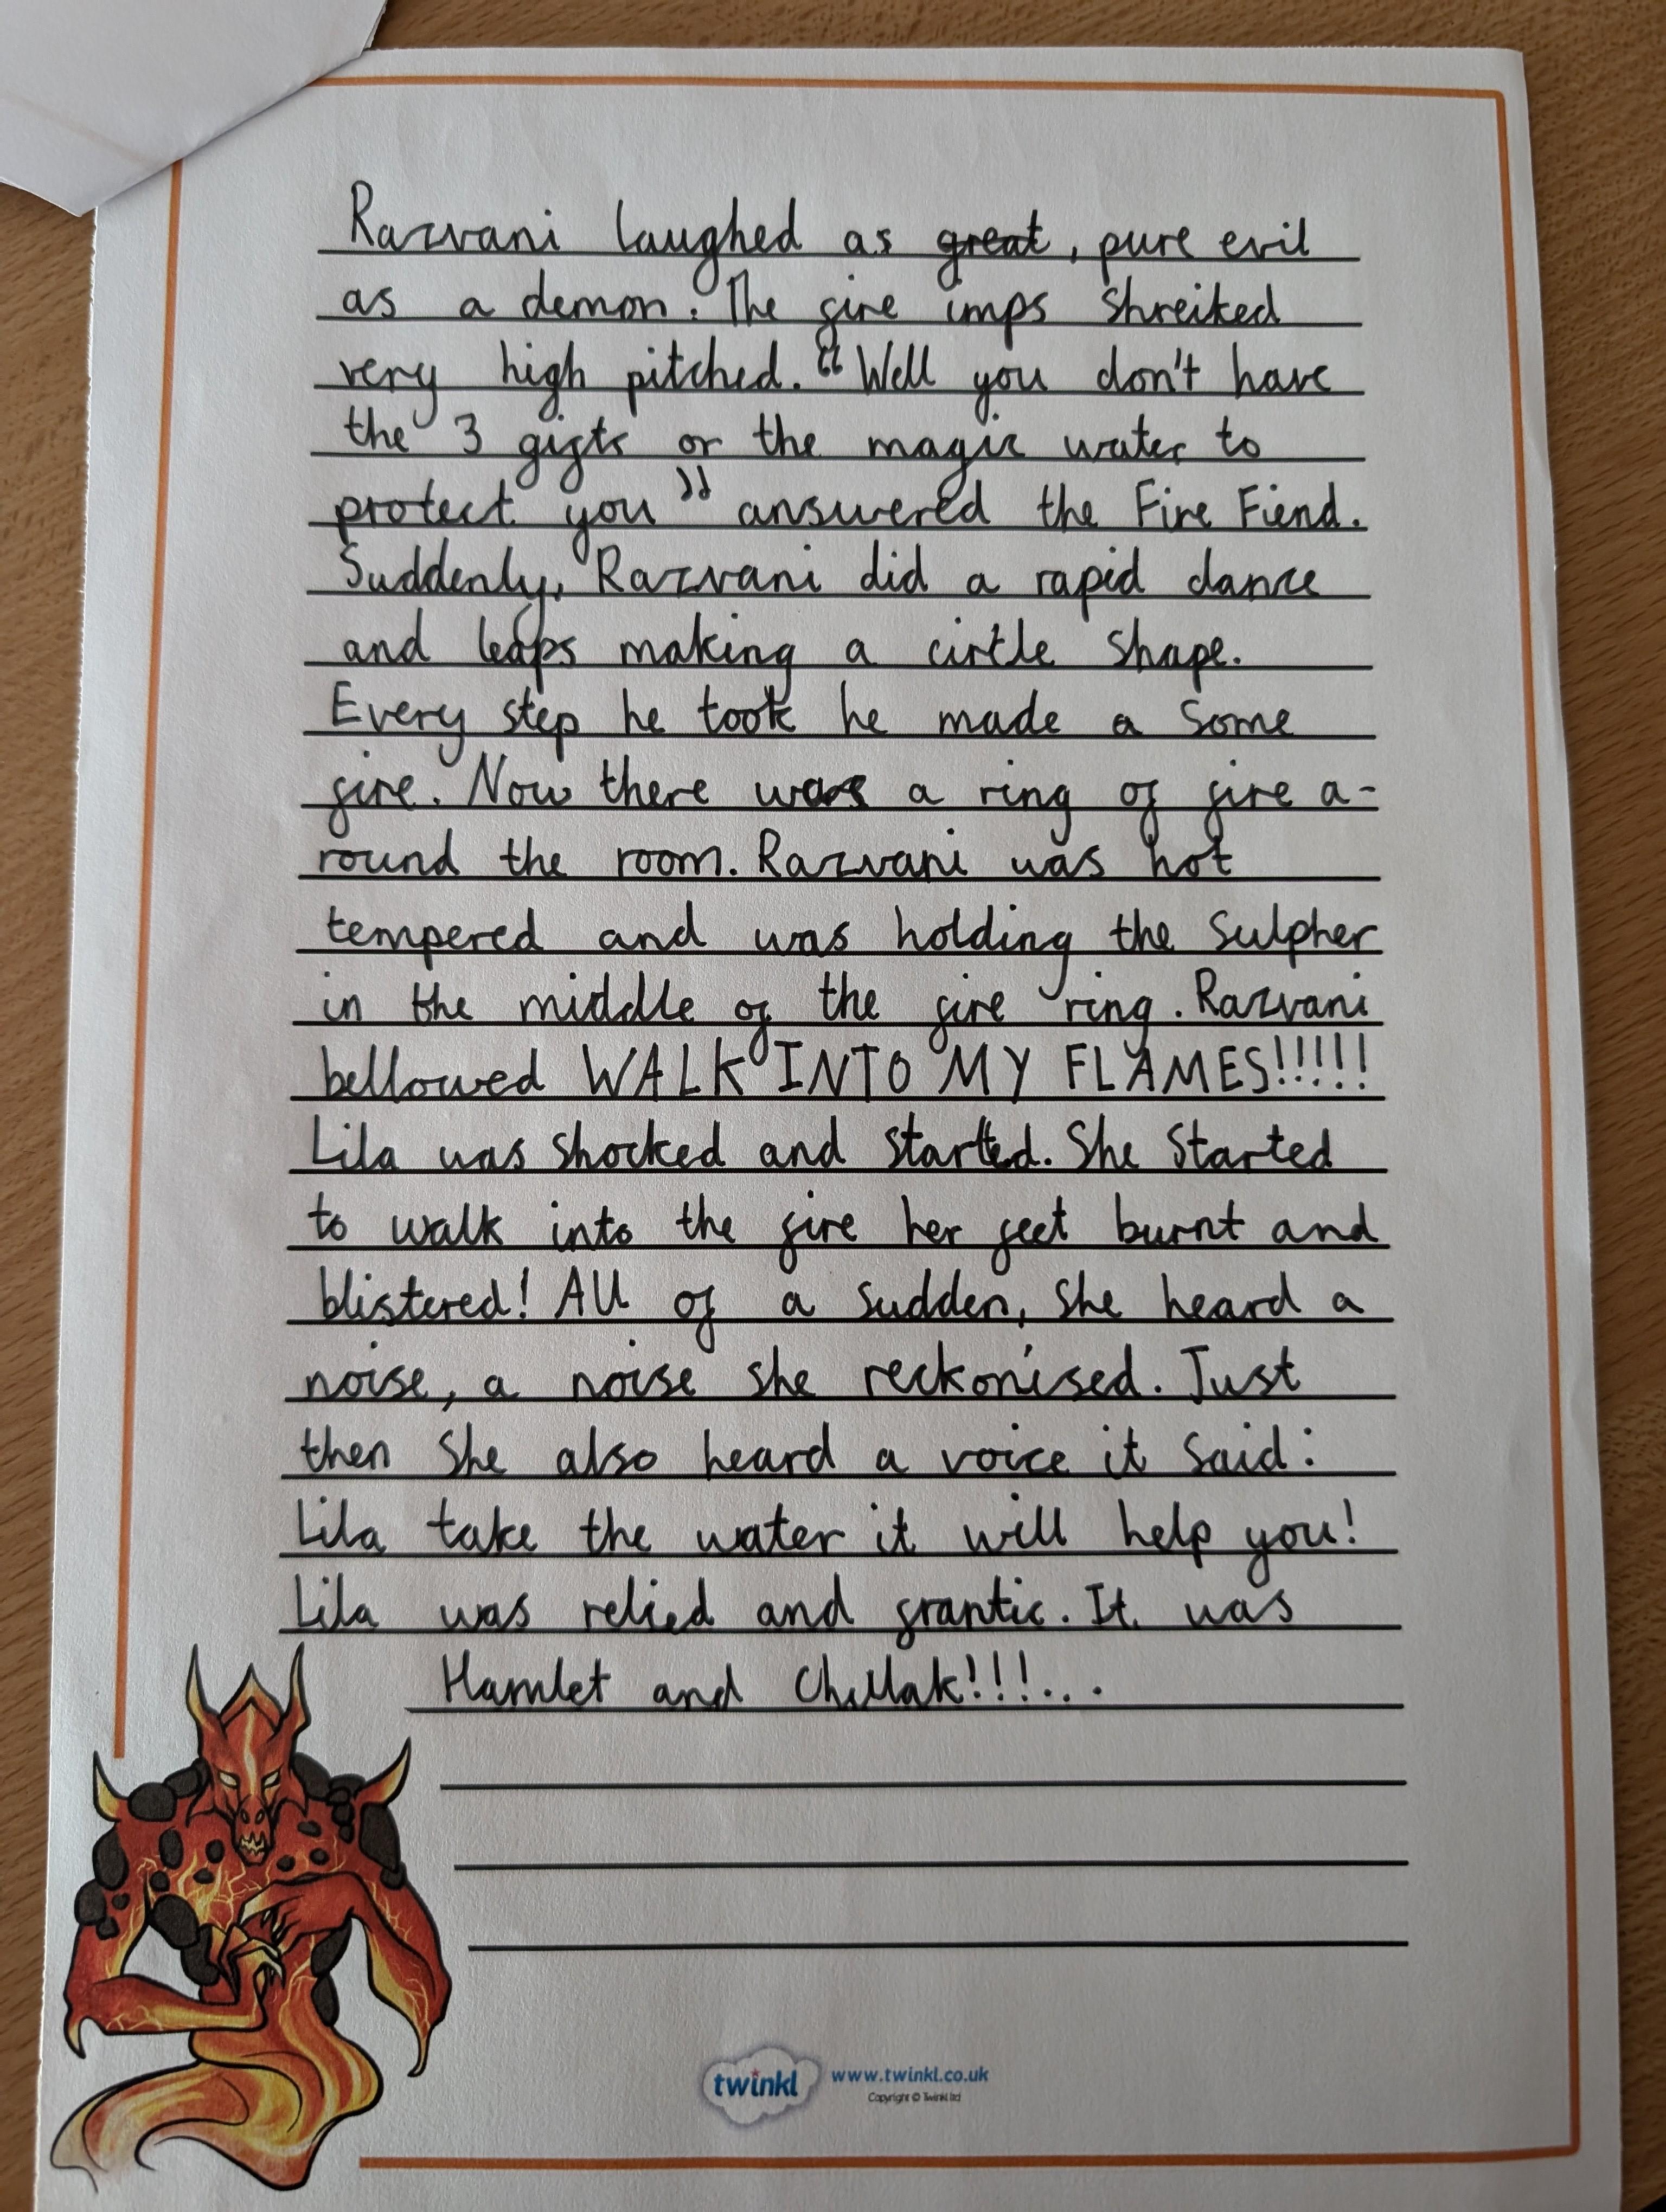 Razvani laughed as great, pure evil
as a demon. The fire imps shreiked
very high pitched. "Well you don't have
the 3 gifts or the magic water to
protect you" answered the Fire Fiend.
Suddenly, Razvani did a rapid dance
and leaps making a circle shape.
Every step he took he made a some
fire. Now there was a ring of fire a-
round the room. Razvani was hot
tempered and was holding the Sulpher
in the middle of the fire ring. Razvani
bellowed WALK INTO MY FLAMES!!!!!
Lila was shocked and started. She started
to walk into the fire her feet burnt and
blistered! All of a sudden, she heard a
noise, a noise she reckonised. Just
then she also heard a voice it said:
Lila take the water it will help you!
Lila was relied and frantic. It was
Hamlet and Chullak!!!...
twinkl www.twinkl.co.uk
Copyright © Twinkl ltd